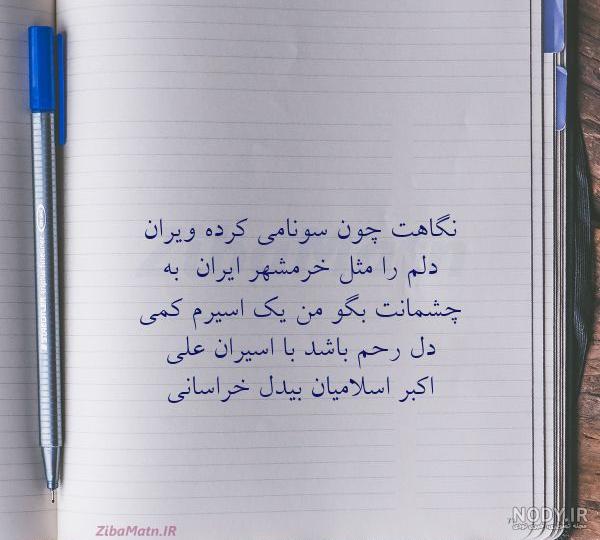 نگاهت چون سونامی کرده ویران
دلم را مثل خرمشهر ایران به
چشمانت بگو من یک اسیرم کمی
دل رحم باشد با اسیران علی
اکبر اسلامیان بیدل خراسانی
ZibaMatn.IR
NODY.IR